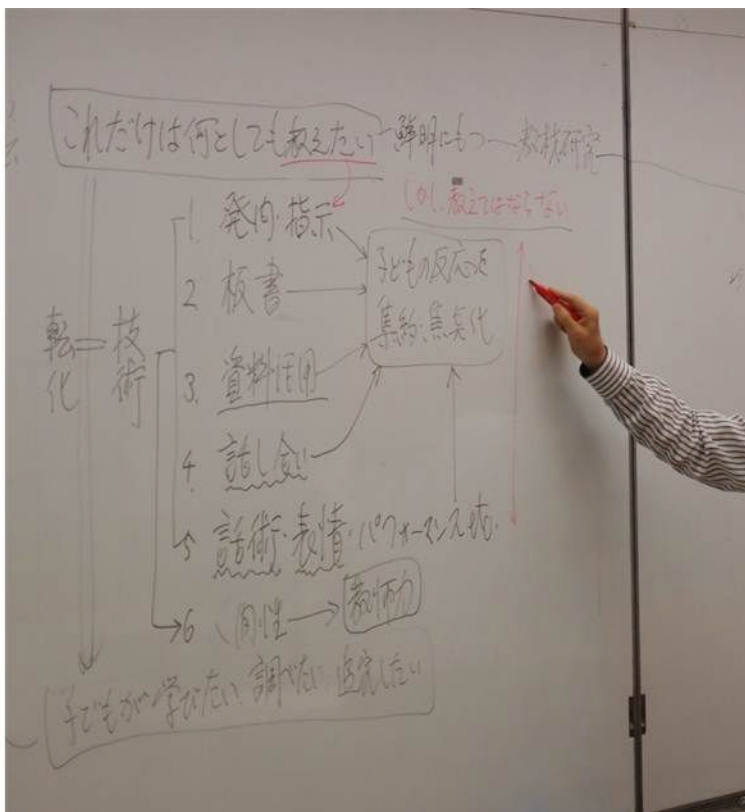 これだけは何としても教えたい 鮮明にもつ 教材研究
しかし、教えてはならない
1. 発問・指示
2 板書
3. 資料活用
4. 話し合い
5 話術・表情・パフォーマンス etc.
6 人間性 教師力
子どもの反応を
集約・焦点化
転化
技術
子どもが学びたい、調べたい、追究したい